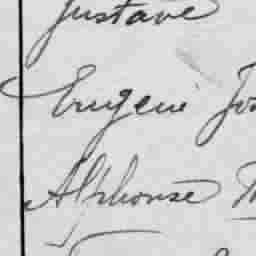 Gustave
Eugene Jos
Alphonse M